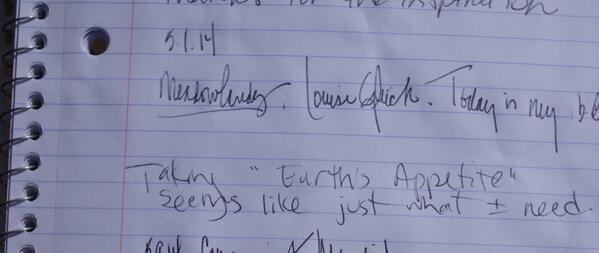 for the inspiration
5.1.14
Meadowlands. Louise Glück. Today in my
Taking "Earth's Appetite"
seems like just what I need.